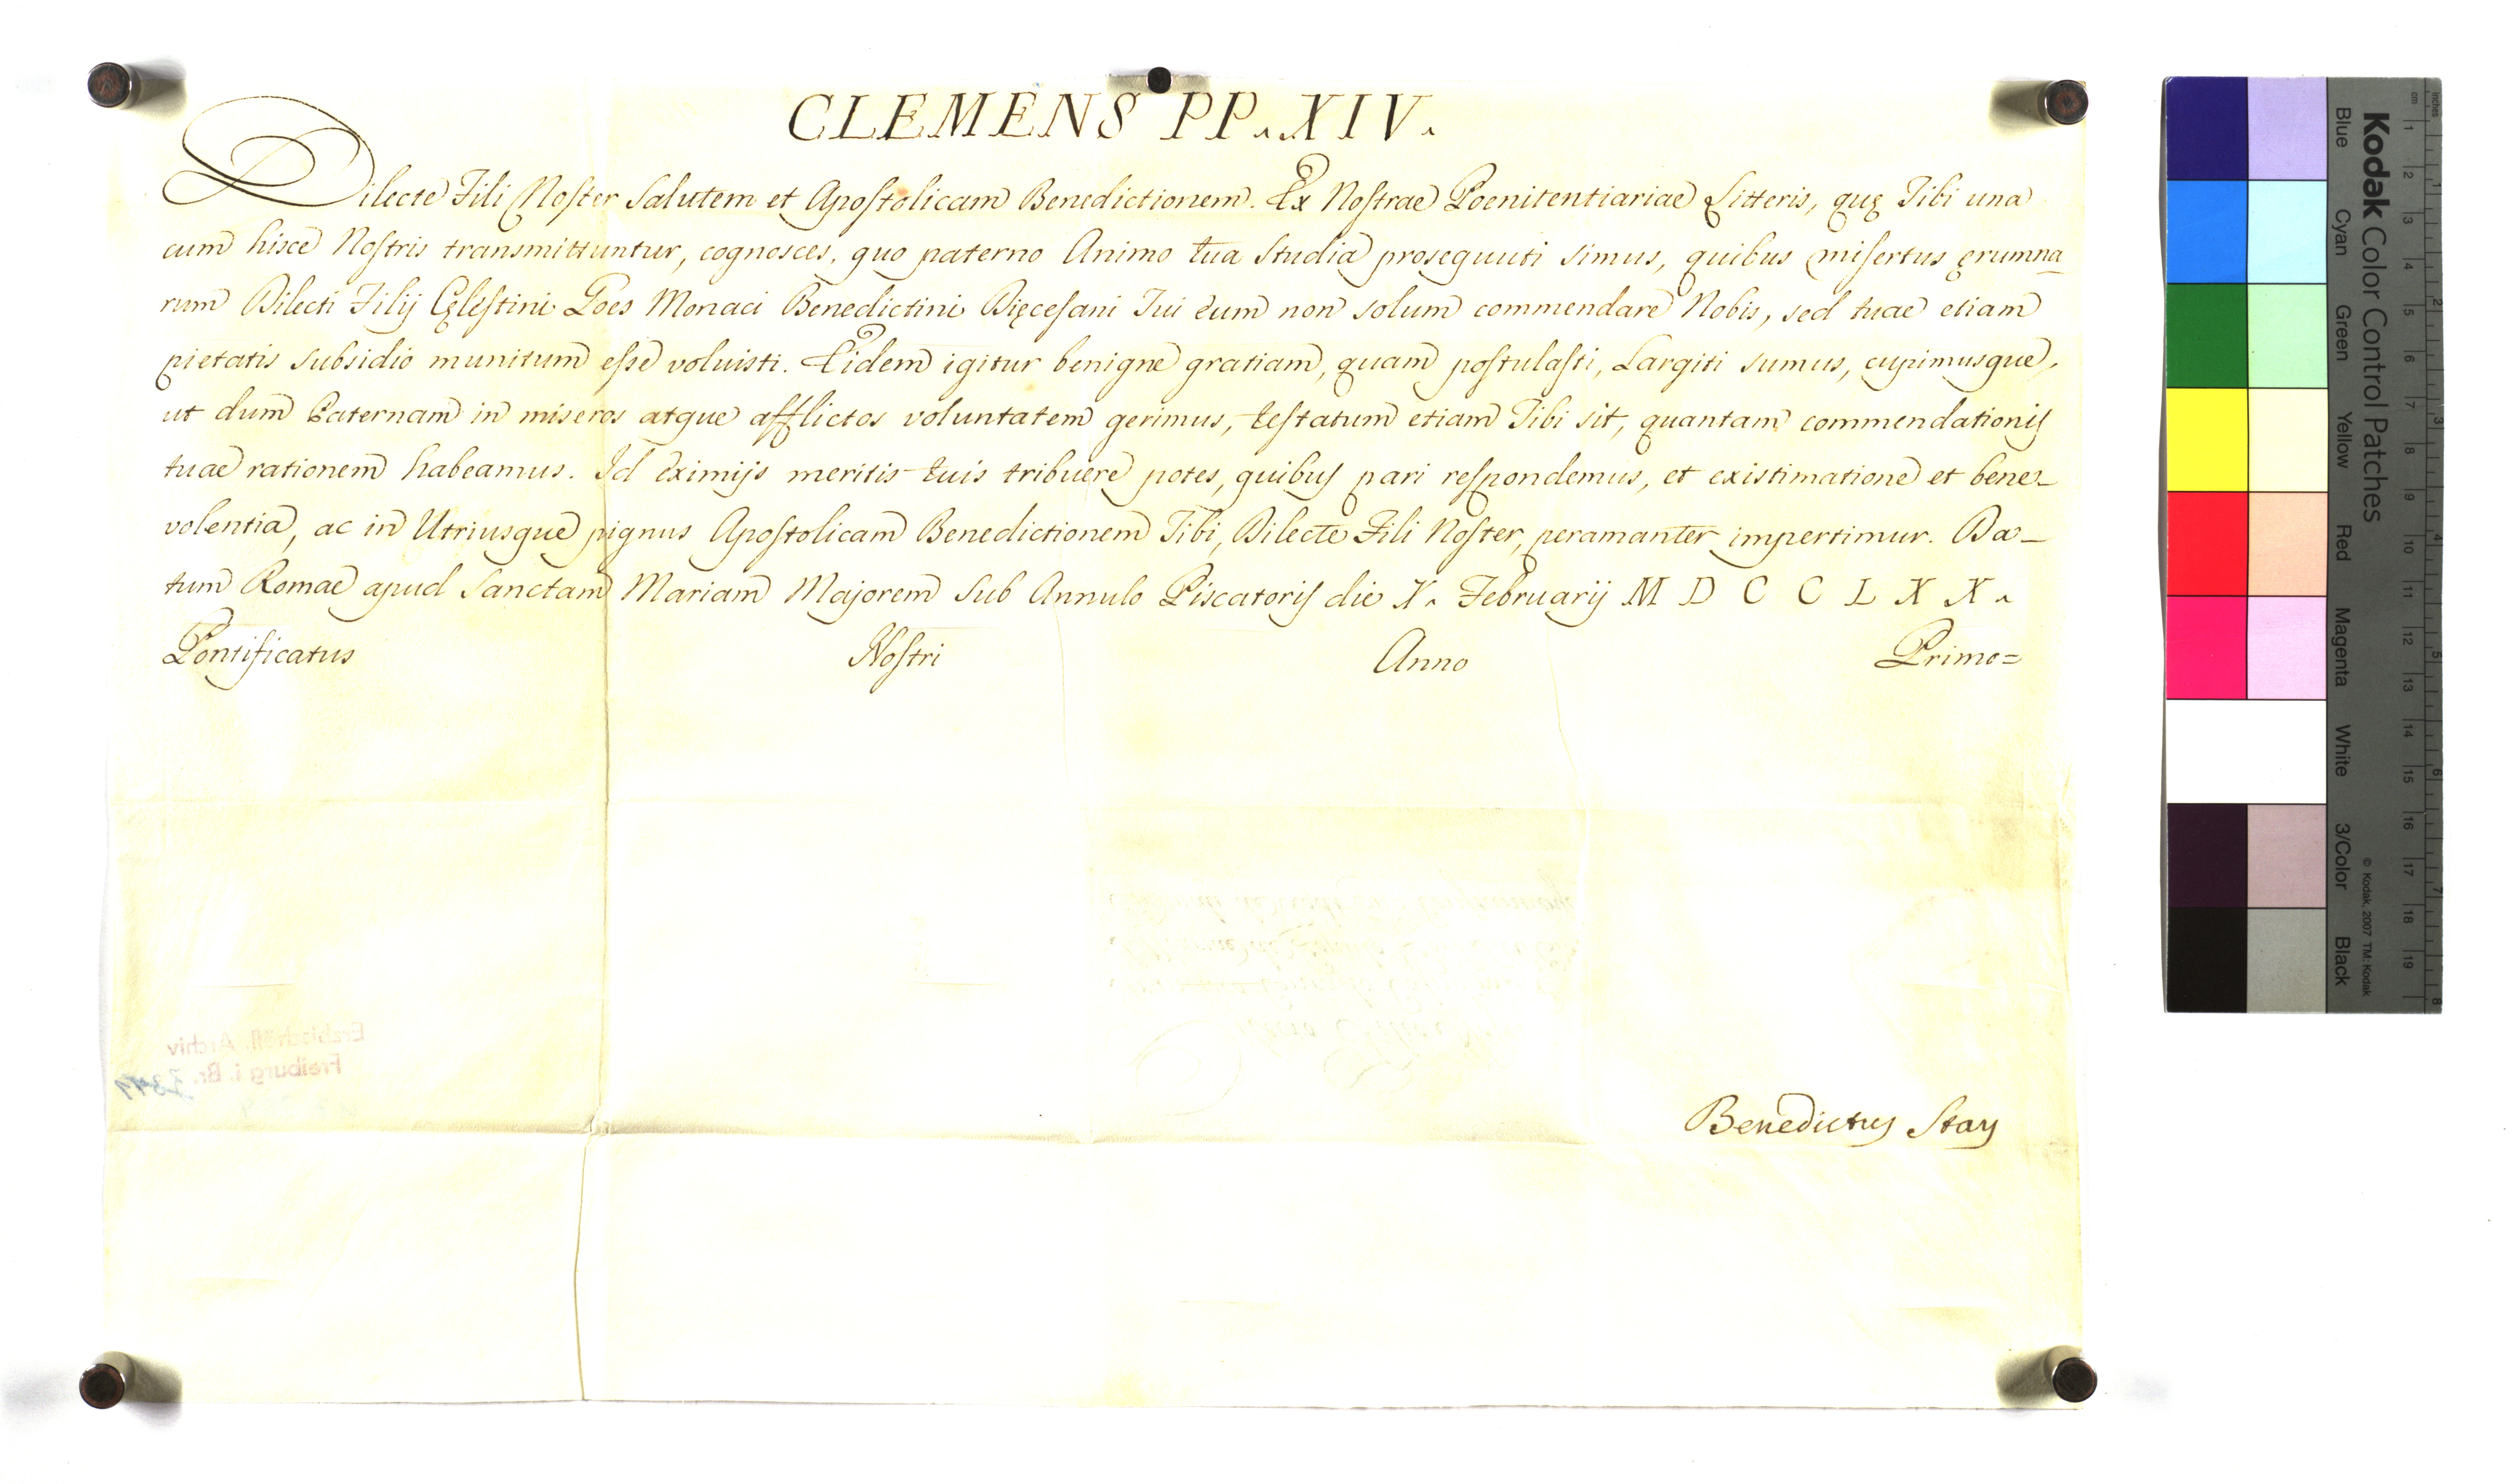 CLEMENS PP. XIV.
Dilecte Fili Noster Salutem et Apostolicam Benedictionem. Ex Nostrae Poenitentiariae Litteris, quę Tibi una
cum hisce Nostris transmittuntur, cognosces, quo paterno Animo tua Studia prosequuti simus, quibus misertus ęrumna
rum Dilecti Filij Cęlestini Goes Monaci Benedictini Dięcesani Tui eum non solum commendare Nobis, sed tuae etiam
pietatis subsidio munitum esse voluisti. Eidem igitur benigne gratiam, quam postulasti, Largiti sumus, cupimusque,
ut dum Paternam in miseros atque afflictos voluntatem gerimus, testatum etiam Tibi sit, quantam commendationis
tuae rationem habeamus. Id eximijs meritis tuis tribuere potes, quibus pari respondemus, et existimatione et bene-
volentia, ac in Utriusque pignus Apostolicam Benedictionem Tibi, Dilecte Fili Noster, peramanter impertimur. Da-
tum Romae apud Sanctam Mariam Majorem Sub Annulo Piscatoris die X. Februarij M D C C L X X.
Pontificatus Nostri Anno Primo=
Erzbischöfl. Archiv
Freiburg i. Br.
Benedictus Stay
Kodak Color Control Patches
© Kodak, 2007 TM: Kodak
Blue Cyan Green Yellow Red Magenta White 3/Color Black
Inches 1 2 3 4 5 6 7 8
cm 1 2 3 4 5 6 7 8 9 10 11 12 13 14 15 16 17 18 19